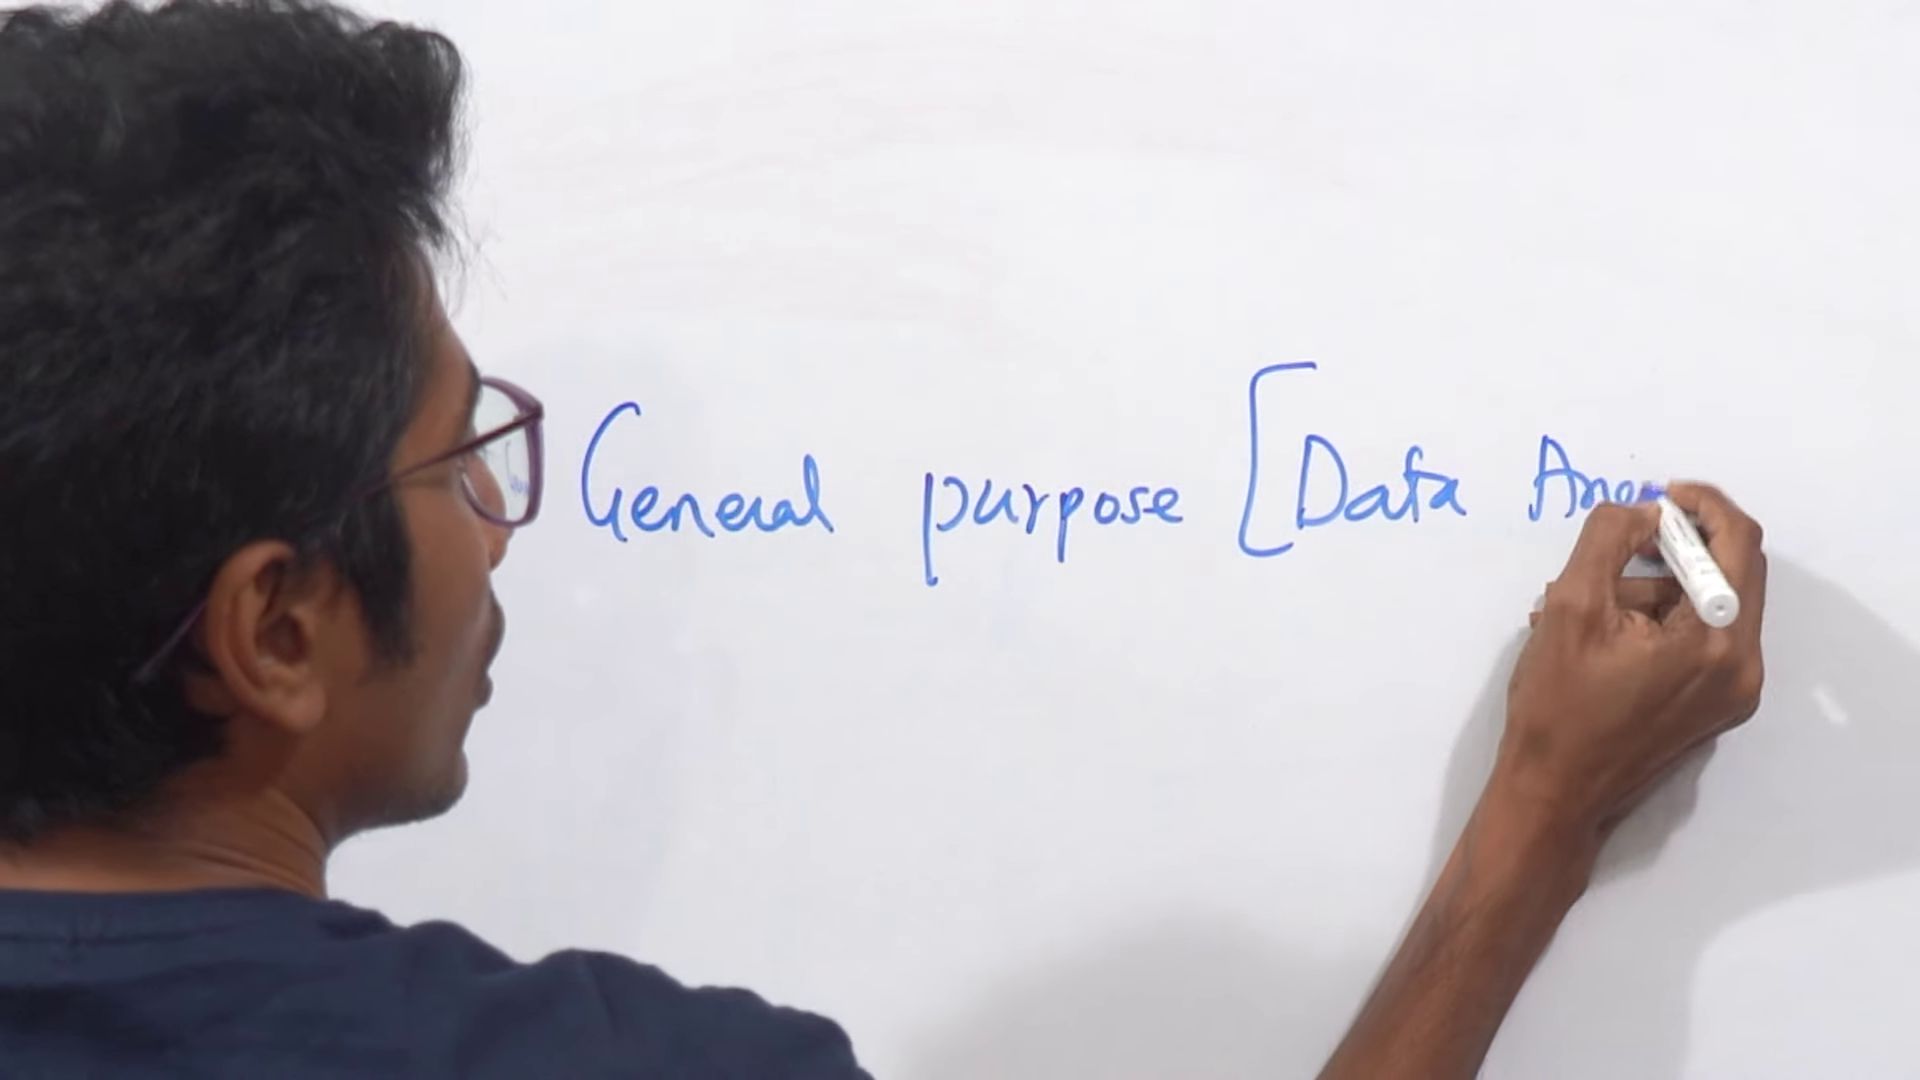 General purpose [Data Ana